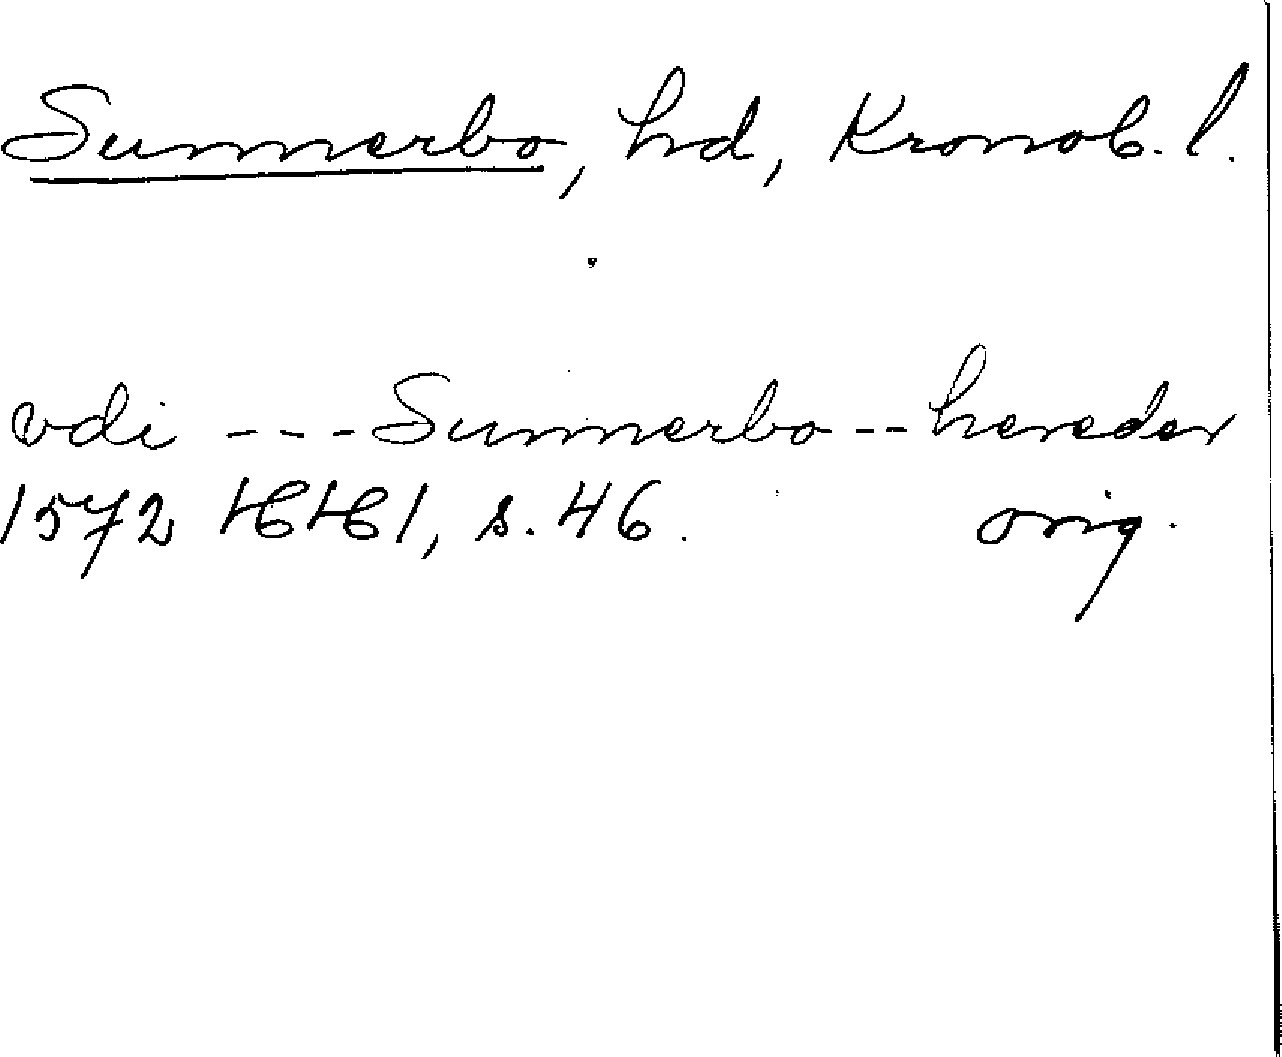 Sunnerbo, hd, Kronob. l.
vdi --- Sunnerbo -- hereder
1572 HH 1, s. 46. orig.